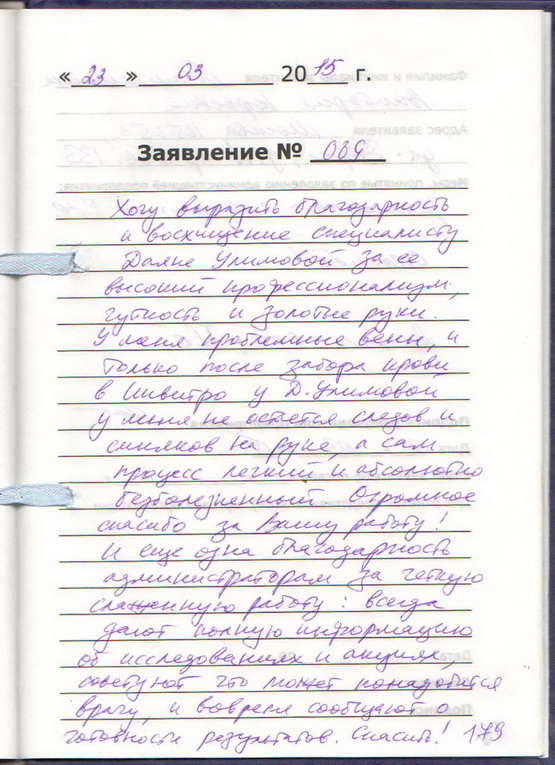 « 23 » 03 2015 г.
Заявление № 089
Хочу выразить благодарность
и восхищение специалисту
Даяне Улимовой за ее
высокий профессионализм,
чуткость и золотые руки.
У меня проблемные вены, и
только после забора крови
в Инвитро у Д. Улимовой
у меня не остается следов и
синяков на руке, а сам
процесс легкий и абсолютно
безболезненный Огромное
спасибо за Вашу работу!
И еще одна благодарность
администраторам за четкую
слаженную работу: всегда
дают полную информацию
об исследованиях и акциях,
советуют что может понадобится
врачу, и вовремя сообщают о
готовности результатов. Спасибо! 179